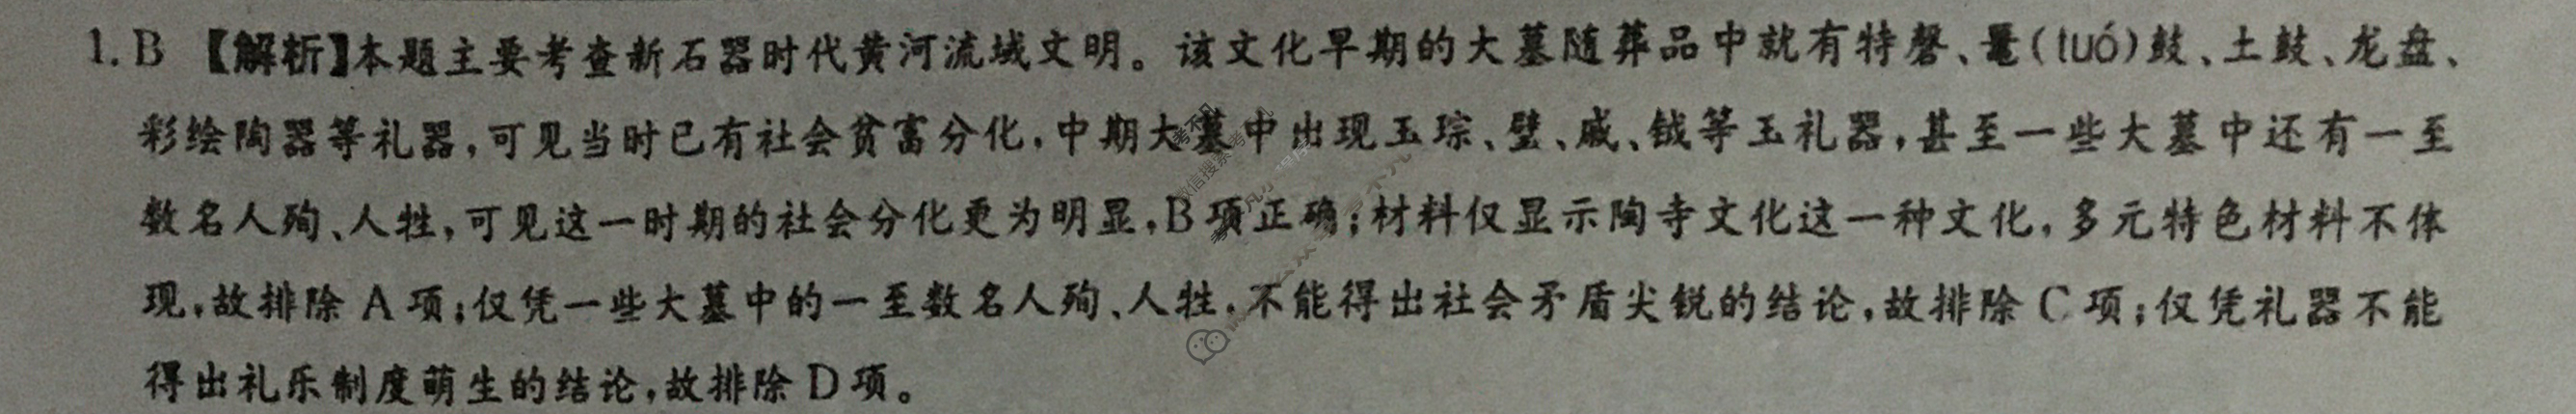 1. B 【解析】本题主要考查新石器时代黄河流域文明。该文化早期的大墓随葬品中就有特磬、鼍(tuó)鼓、土鼓、龙盘、
彩绘陶器等礼器,可见当时已有社会贫富分化,中期大墓中出现玉琮、璧、戚、钺等玉礼器,甚至一些大墓中还有一至
数名人殉、人牲,可见这一时期的社会分化更为明显,B项正确;材料仅显示陶寺文化这一种文化,多元特色材料不体
现,故排除 A 项;仅凭一些大墓中的一至数名人殉、人牲,不能得出社会矛盾尖锐的结论,故排除 C 项;仅凭礼器不能
得出礼乐制度萌生的结论,故排除 D 项。